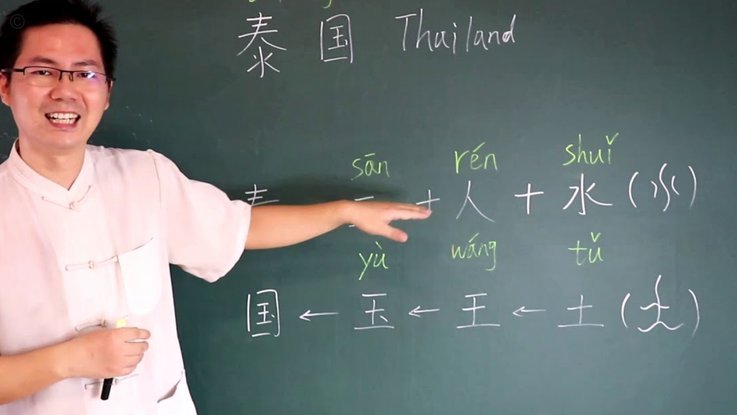 泰 国 Thailand
sān rén shuǐ
+ 人 + 水 (氺)
yù wáng tǔ
国 ← 玉 ← 王 ← 土 ( )